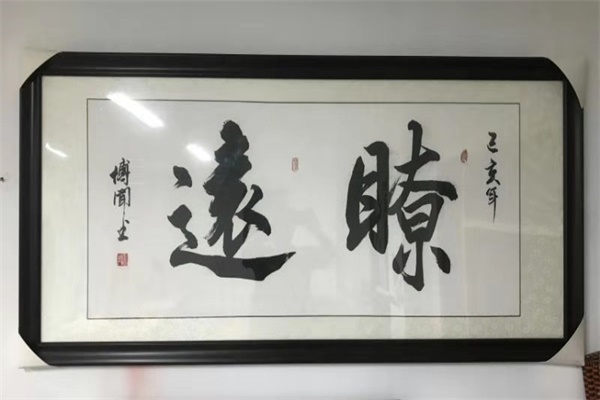 己亥年
瞭遠
博聞書